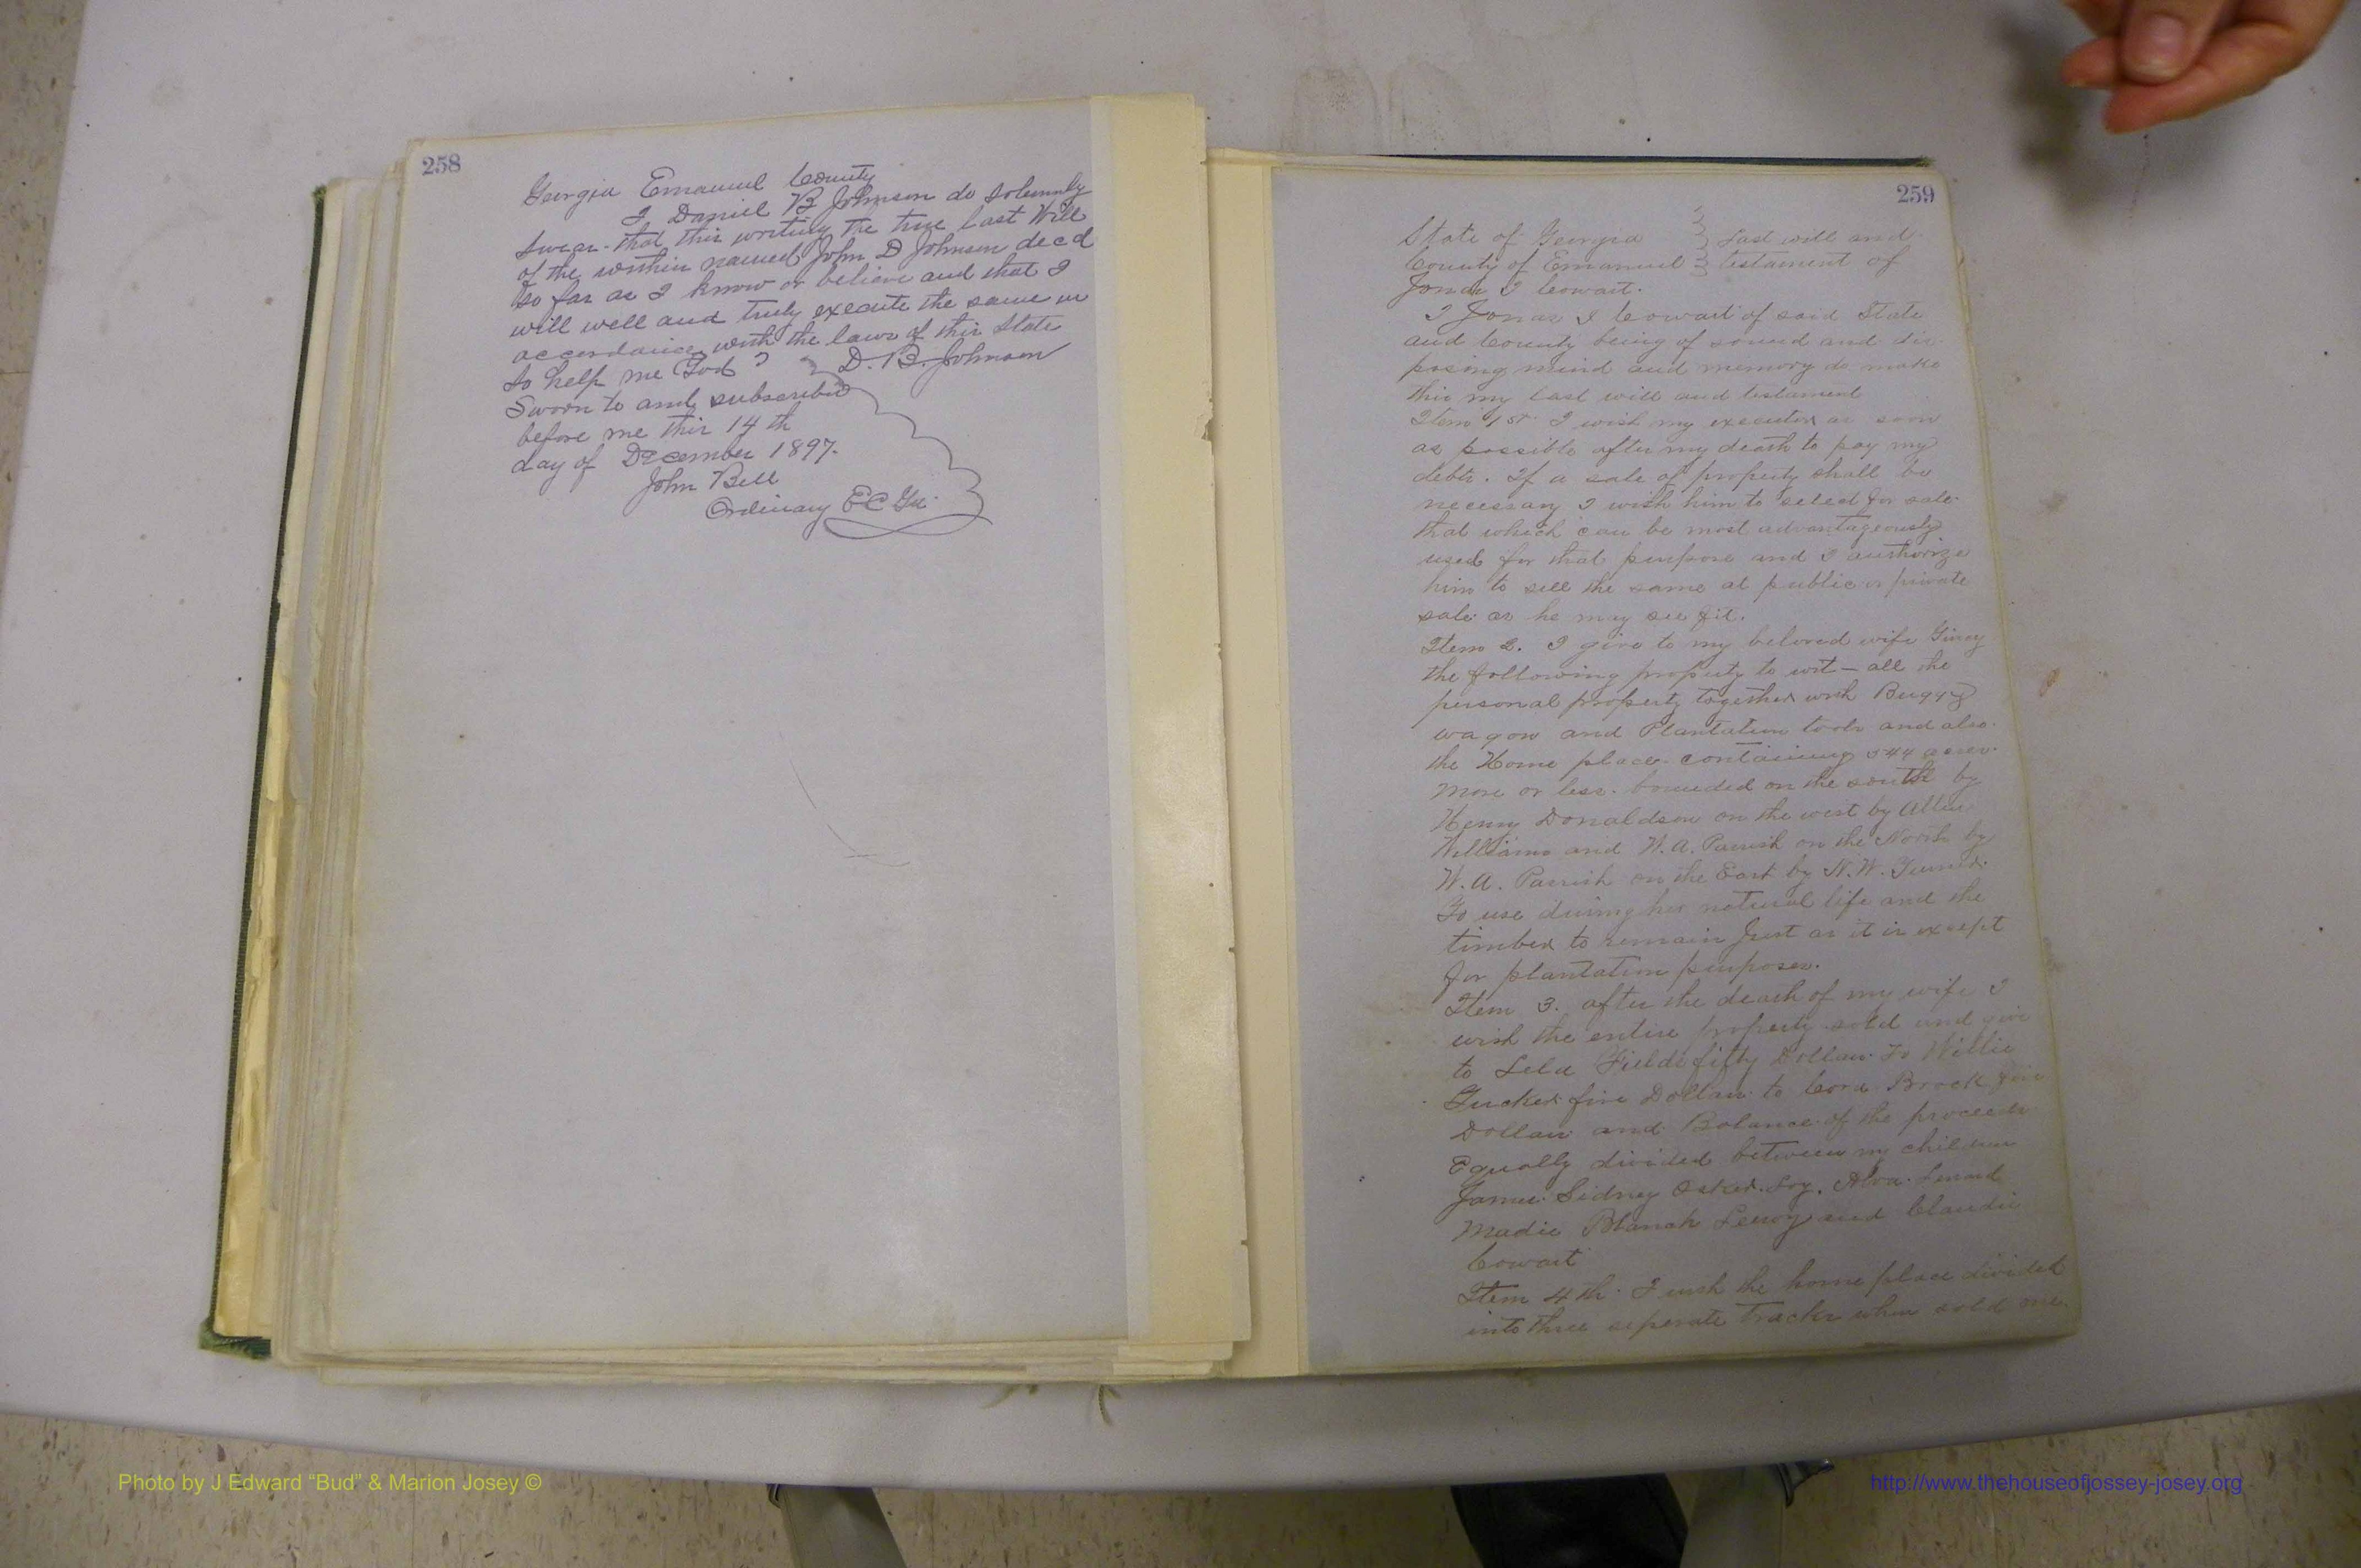 258
Georgia Emanuel County
I Daniel B Johnson do solemnly
swear that this writing the true last Will
of the within named John D Johnson decd
so far as I know or believe and that I
will well and truly execute the same in
accordance with the laws of this State
so help me God D. B. Johnson
Sworn to and subscribed
before me this 14th
day of December 1897.
John Bell
Ordinary EC Ga
259
State of Georgia Last will and
County of Emanuel testament of
Jonas I Cowart.
I Jonas I Cowart of said State
and County being of sound and dis
posing mind and memory do make
this my last will and testament
Item 1st I wish my executor as soon
as possible after my death to pay my
debts. If a sale of property shall be
necessary I wish him to select for sale
that which can be most advantageously
used for that purpose and I authorize
him to sell the same at public or private
sale as he may see fit.
Item 2. I give to my beloved wife
the following property to wit - all the
personal property together with Buggy
wagon and Plantation tools and also
the Home place containing acres
more or less. bounded on the south by
Henry Donaldson on the west by Allen
Williams and W. A. Parrish on the North by
W. A. Parrish on the East by N. W. Turner.
To use during her natural life and the
timber to remain just as it is except
for plantation purposes.
Item 3. after the death of my wife I
wish the entire property sold and give
to Lela Fields fifty Dollars To Willie
Tucker five Dollars to Cora Brock five
Dollars and Balance of the proceeds
Equally divided between my children
James Sidney Osker. Loy. Alva.
Madie Blanch Leroy and Claudie
Cowart
Item 4th. I wish the home place divided
into three seperate tracks when sold one
Photo by J Edward “Bud” & Marion Josey ©
http://www.thehouseofjossey-josey.org